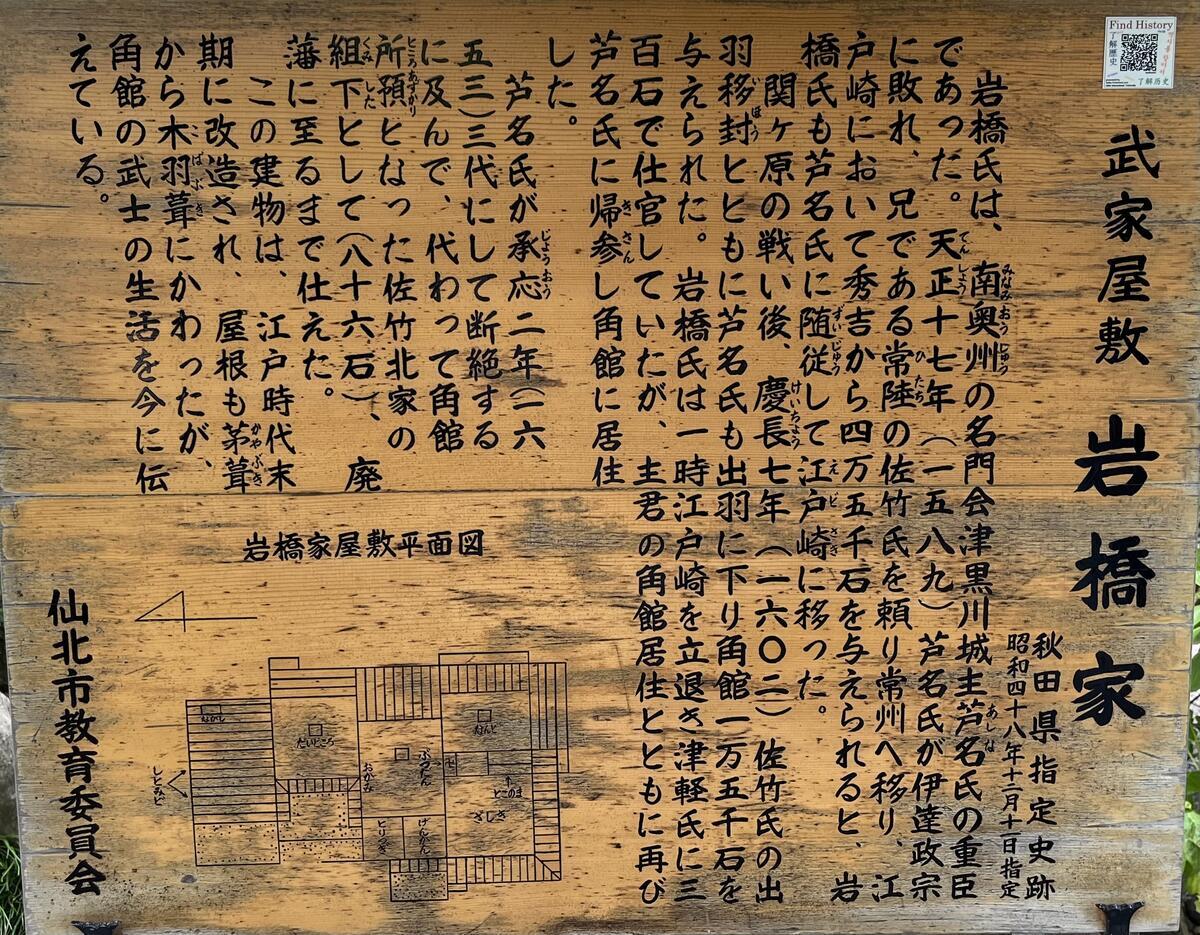 Find History
了解歴史
了解历史
武家屋敷 岩橋家
秋田県指定史跡
昭和四十八年十二月十一日指定
岩橋氏は、南奥州の名門会津黒川城主芦名氏の重臣
であった。天正十七年(一五八九)芦名氏が伊達政宗
に敗れ、兄である常陸の佐竹氏を頼り常州へ移り、江
戸崎において秀吉から四万五千石を与えられると、岩
橋氏も芦名氏に随従して江戸崎に移った。
関ヶ原の戦い後、慶長七年(一六〇二)佐竹氏の出
羽移封とともに芦名氏も出羽に下り角館一万五千石を
与えられた。岩橋氏は一時江戸崎を立退き津軽氏に三
百石で仕官していたが、主君の角館居住とともに再び
芦名氏に帰参し角館に居住
した。
芦名氏が承応二年(一六
五三)三代にして断絶する
に及んで、代わって角館
所預となった佐竹北家の
組下として(八十六石)、廃
藩に至るまで仕えた。
この建物は、江戸時代末
期に改造され、屋根も茅葺
から木羽葺にかわったが、
角館の武士の生活を今に伝
えている。
岩橋家屋敷平面図
ながし
だいどころ
おかみ
ぶつだん
なんど
とこのま
ざしき
げんかん
とりつぎ
しとみど
仙北市教育委員会